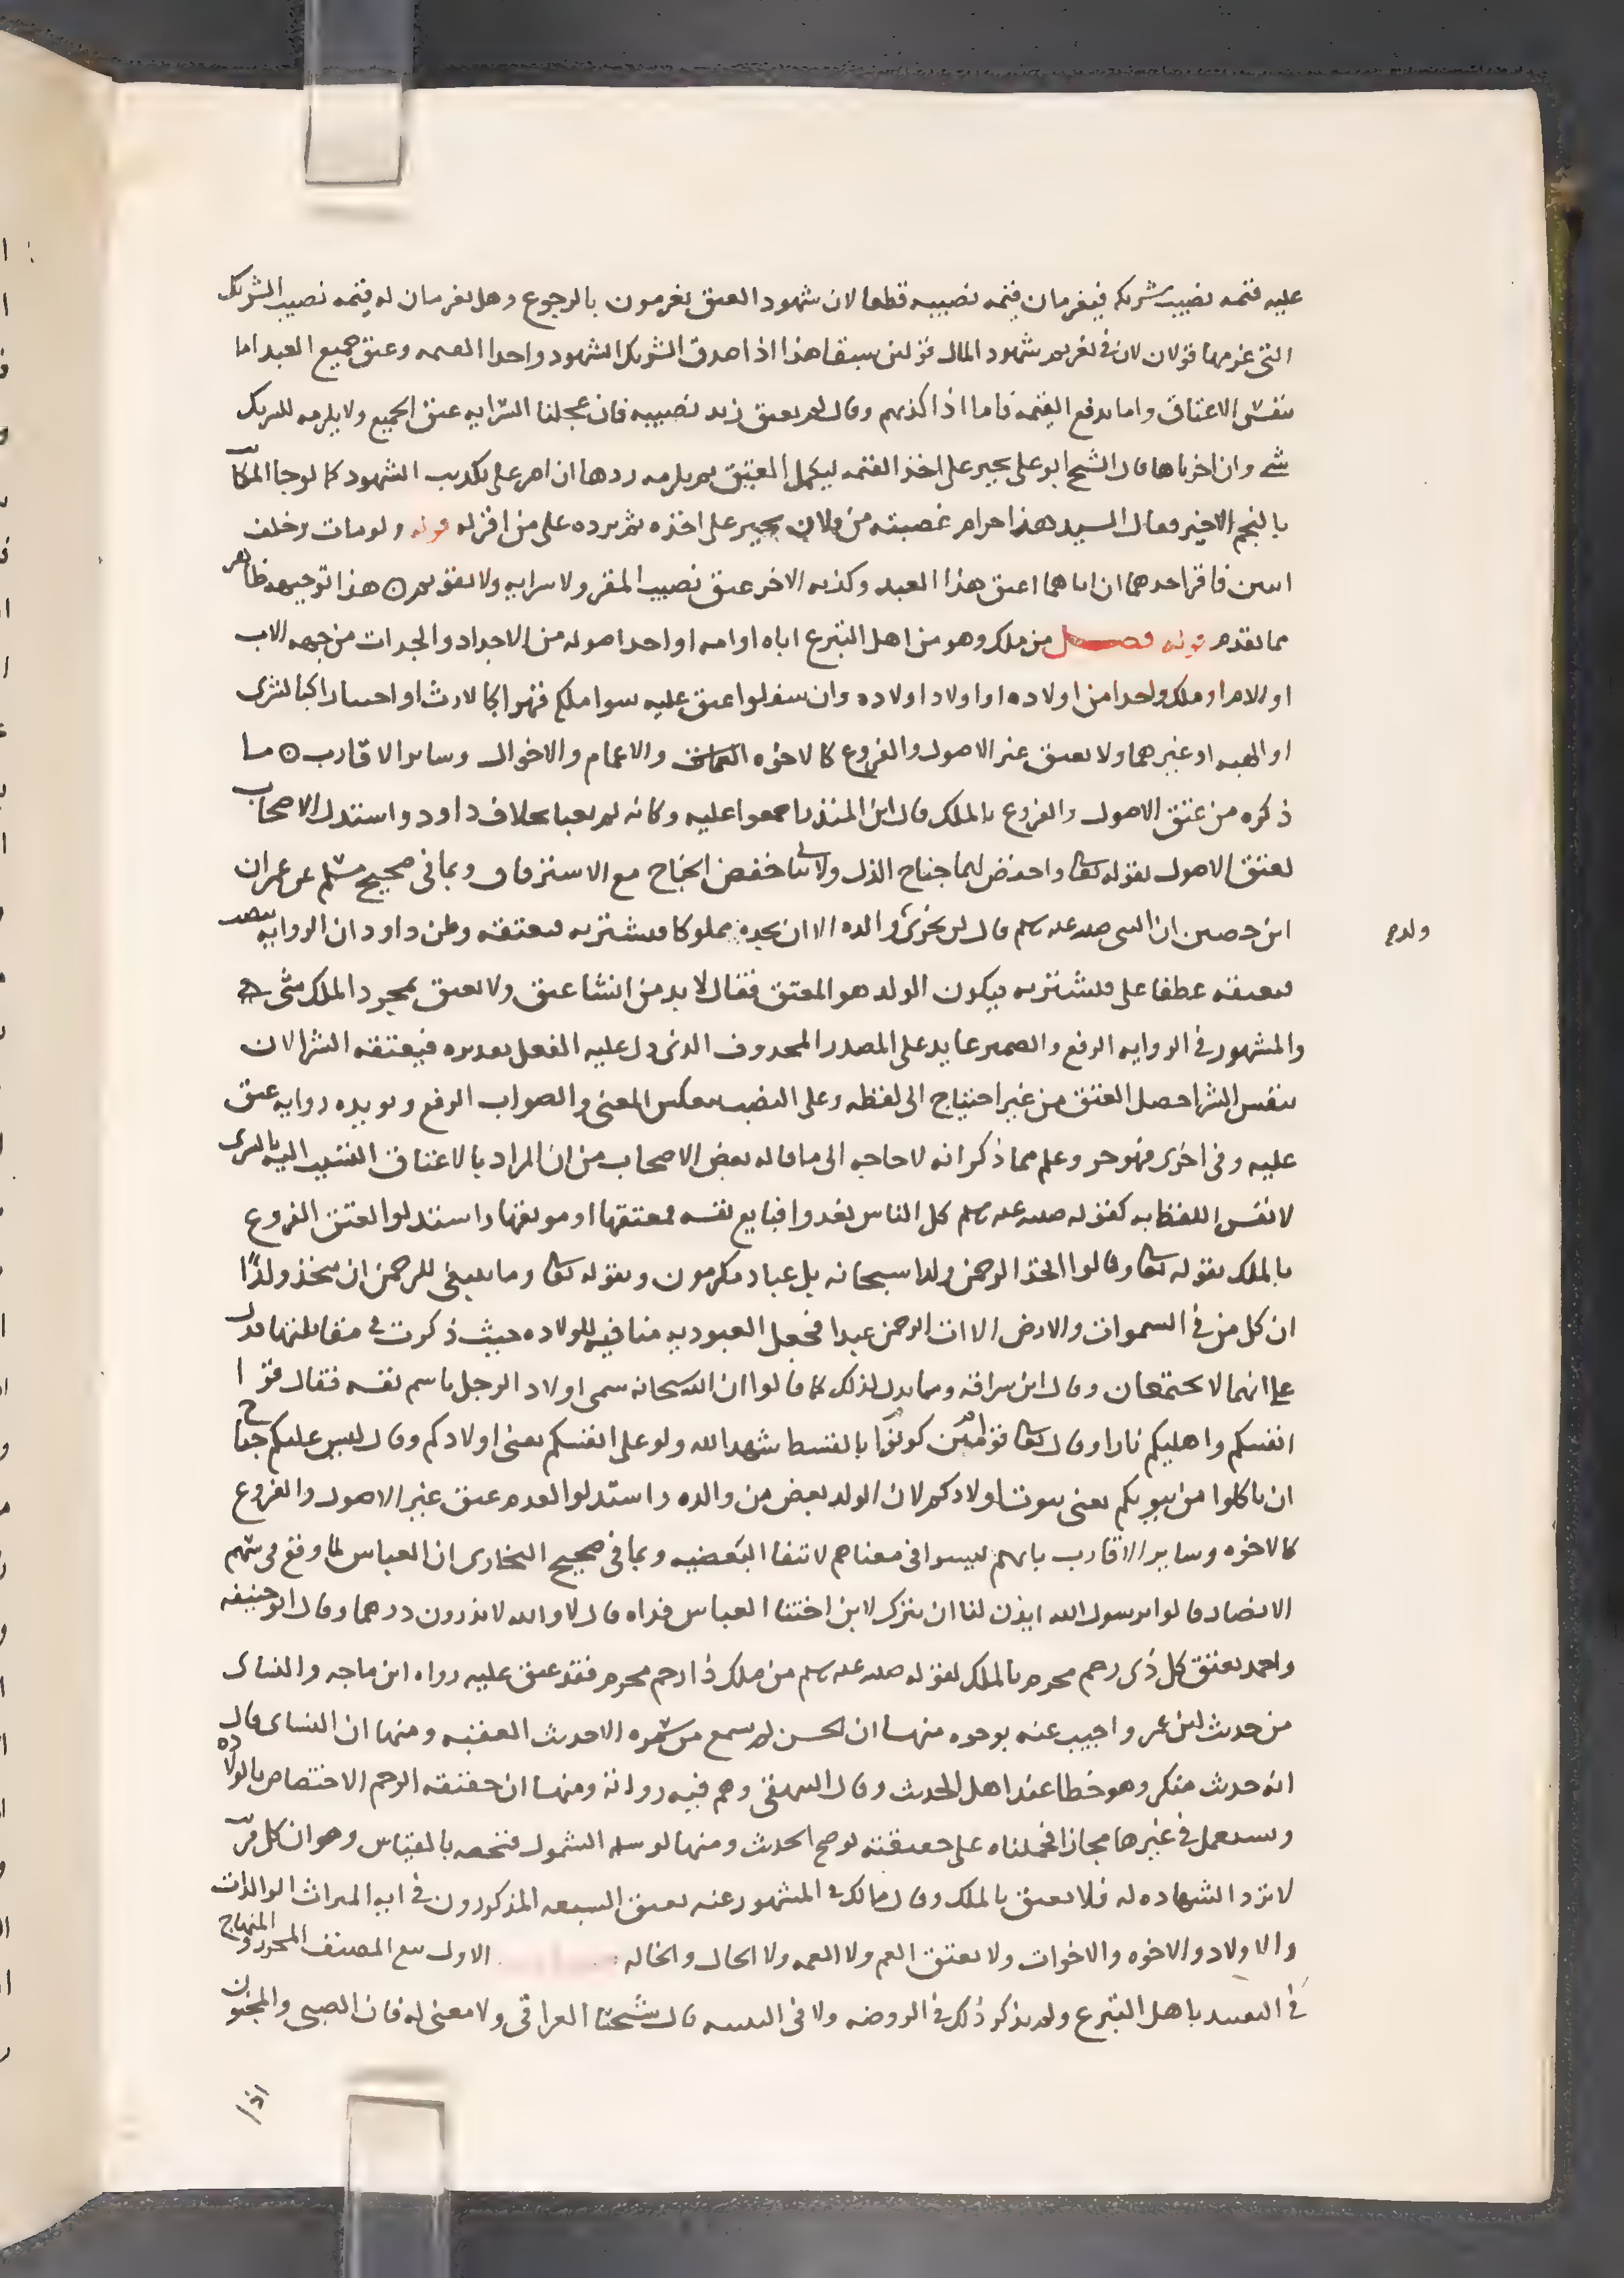 عليه قيمه نصيب شريكه فيغرمان قيمه نصيبه قطعا لان شهود العتق يغرمون بالرجوع وهل يغرمان له قيمه نصيب الشريك
التي غرمها قولان لان في تغريم شهود المال قولين سبقا هذا اذا صدق الشريك الشهود واخذ القيمه وعتق جميع العبد اما
بنفس الاعتاق واما بدفع القيمه فاما اذا كذبهم وقال لم يعتق زيد نصيبه فان عجلنا السرايه عتق الجميع ولا يلزمه للشريك
شي وان اخرناها قال الشيخ ابو علي يجبر علي اخذ القيمه ليكمل العتق ثم يلزمه ردها ان اصر علي تكذيب الشهود كما لو جا المكاتب
بالنجم الاخير فقال السيد هذا حرام غصبته من فلان يجبر علي اخذه ثم يرده علي من اقر له قوله ولو مات وخلف
ابنين فاقر احدهما ان اباهما اعتق هذا العبد وكذبه الاخر عتق نصيب المقر ولا سرايه ولا تقويم ه هذا توجيهه ظاهر
مما تقدم قوله فصل من ملك وهو من اهل التبرع اباه او امه او احد اصوله من الاجداد والجدات من جهه الاب
او الام او ملك واحدا من اولاده او اولاد اولاده وان سفلوا عتق عليه سوا ملكه قهرا كالارث او اختيارا كالشرى
او الهبه او غيرهما ولا يعتق غير الاصول والفروع كالاخوه والاعمام والاخوال وساير الاقارب ه ما
ذكره من عتق الاصول والفروع بالملك قال ابن المنذر اجمعوا عليه وكانه لم يعبا بخلاف داود واستدل الاصحاب
لعتق الاصول بقوله تعالى واخفض لهما جناح الذل ولا يتاتى خفض الجناح مع الاسترقاق وبما في صحيح مسلم عن عمران
ابن حصين ان النبي صلى الله عليه وسلم قال لن يجزئ والده الا ان يجده مملوكا فيشتريه فيعتقه وظن داود ان الروايه بنصب
ولد صح
فيعتقه عطفا علي فيشتريه فيكون الولد هو المعتق فقال لا بد من انشا عتق ولا يعتق بمجرد الملك شي
والمشهور في الروايه الرفع والضمير عايد علي المصدر المحذوف الذي دل عليه الفعل تقديره فيعتقه الشرا لان
بنفس الشرا حصل العتق من غير احتياج الى لفظه وعلى النصب ينعكس المعنى والصواب الرفع ويويده روايه عتق
عليه وفي اخرى فهو حر وعلم مما ذكر انه لا حاجه الى ما قاله بعض الاصحاب من ان المراد بالاعتاق التسبب اليه بالشرى
لا نفس اللفظ به كقوله صلى الله عليه وسلم كل الناس يغدوا فبايع نفسه فمعتقها او موبقها واستدلوا لعتق الفروع
بالملك بقوله تعالى وقالوا اتخذ الرحمن ولدا سبحانه بل عباد مكرمون وبقوله تعالى وما ينبغي للرحمن ان يتخذ ولدًا
ان كل من في السموات والارض الا ات الرحمن عبدا فجعل العبوديه منافيه للولاده حيث ذكرت في مقابلتها فدل
علي انهما لا يجتمعان وقال ابن سراقه ومما يدل لذلك كما قالوا ان الله سبحانه سمى اولاد الرجل باسم نفسه فقال قوا
انفسكم واهليكم نارا وقال تعالى كونوا قوامين بالقسط شهدا لله ولو على انفسكم يعني اولادكم وقال ليس عليكم جناح
ان تاكلوا من بيوتكم يعني بيوت اولادكم لان الولد بعض من والده واستدلوا لعدم عتق غير الاصول والفروع
كالاخوه وساير الاقارب بانهم ليسوا في معناهم لانتفا البعضيه وبما في صحيح البخاري ان العباس لما وقع في سهم
الانصار قالوا يرسول الله ايذن لنا ان نترك لابن اختنا العباس فداه قال لا والله لا تذرون درهما وقال ابو حنيفه
واحمد يعتق كل ذي رحم محرم بالملك لقوله صلى الله عليه وسلم من ملك ذا رحم محرم فقد عتق عليه رواه ابن ماجه والنساى
من حديث ابن عمر واجيب عنه بوجوه منها ان الحسن لم يسمع من سمره الا حديث العقيقه ومنها ان النساى قال
انه حديث منكر وهو خطا عند اهل الحديث وقال البيهقي وهم فيه رواته ومنها ان حقيقه الرحم الاختصاص بالولاده
ويستعمل في غيرها مجازا فحملناه على حقيقته لو صح الحديث ومنها لو سلم الشمول فنخصه بالقياس وهو ان كل قريب
لا ترد الشهاده له فلا يعتق بالملك وقال مالك في المشهور عنه يعتق السبعه المذكورون في ايه الميراث الوالدان
والاولاد والاخوه والاخوات ولا يعتق العم ولا العمه ولا الخال والخاله الاول تبع المصنف المحرر والمنهاج
في التقييد باهل التبرع ولم يذكر ذلك في الروضه ولا في التنبيه قال شيخنا العراقي ولا معنى له فان الصبي والمجنون
اذا